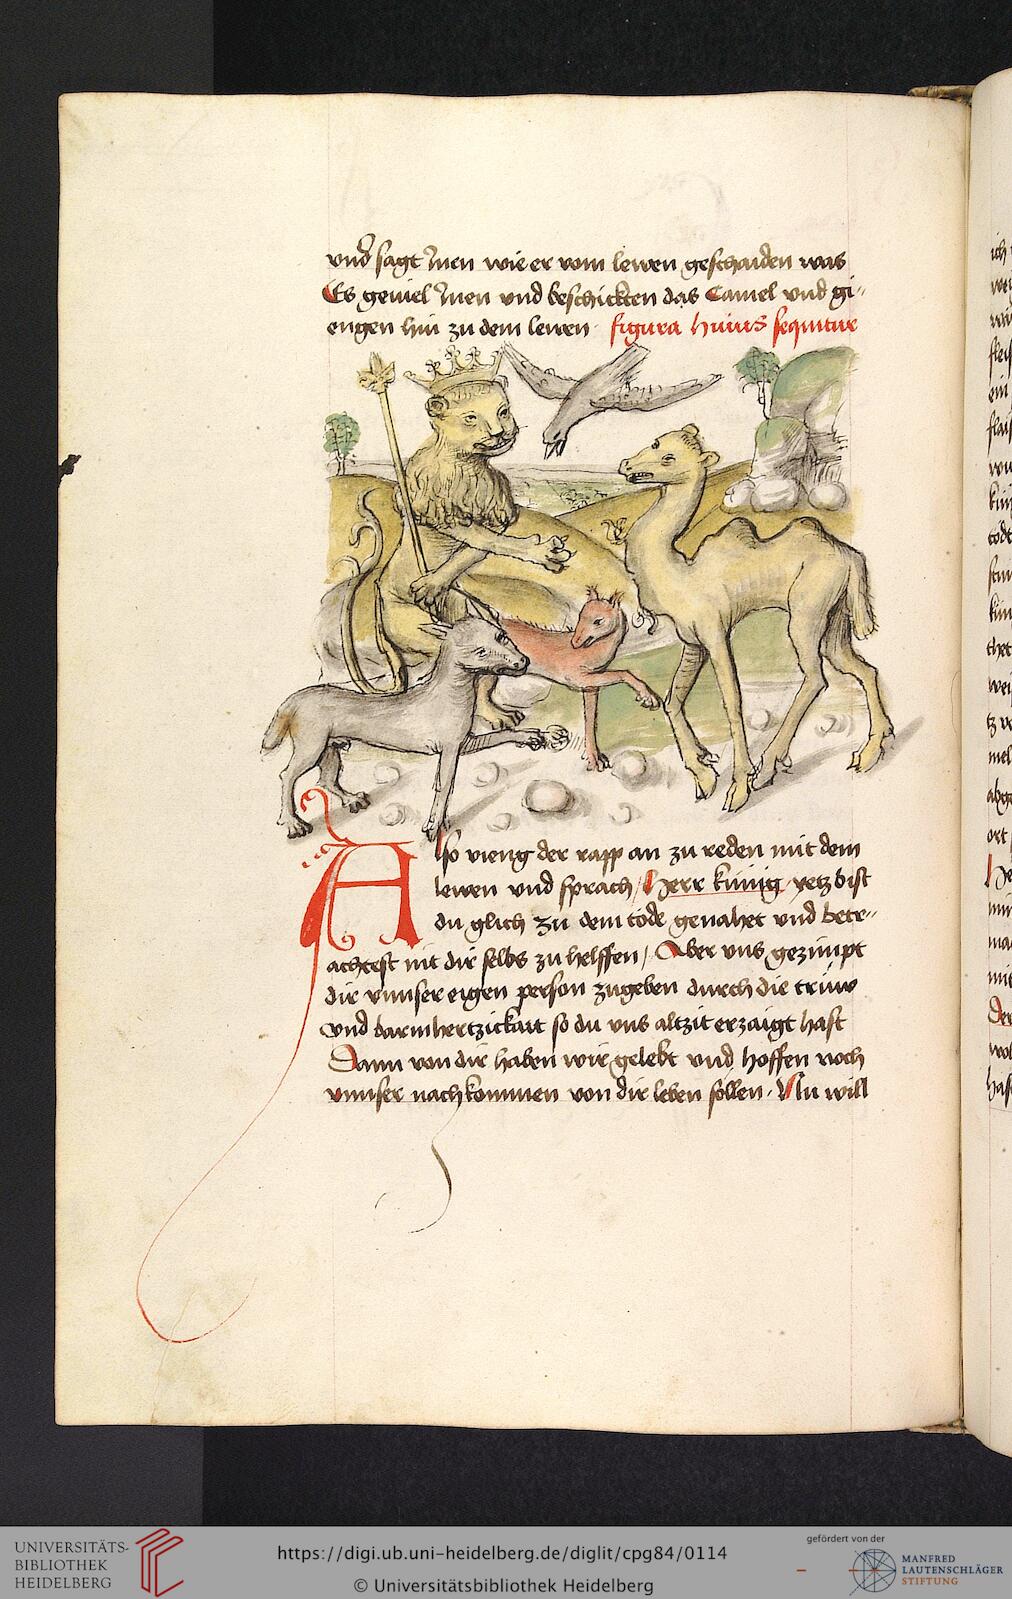 und sagt Inen wie er vom lewen geschaiden was
Es geuiel Inen und beschickten das Camel und gi-
engen hin zu dem lewen · figura huius sequitur
Also vieng der rapp an zu reden mit dem
lewen und sprach / Herr künig yetz bist
du glich zu dem tode genahet und betr-
achtest nit dir selbs zu helffen / Aber uns gezimpt
dir unnser eigen person zugeben durch die trüw
und barmhertzickait so du uns altzit erzaigt hast
Dann von dir haben wir gelebt und hoffen noch
unnser nachkommen von dir leben söllen · Nu will
ich
ein
Der
UNIVERSITÄTS-
BIBLIOTHEK
HEIDELBERG
https://digi.ub.uni-heidelberg.de/diglit/cpg84/0114
© Universitätsbibliothek Heidelberg
gefördert von der
MANFRED
LAUTENSCHLÄGER
STIFTUNG